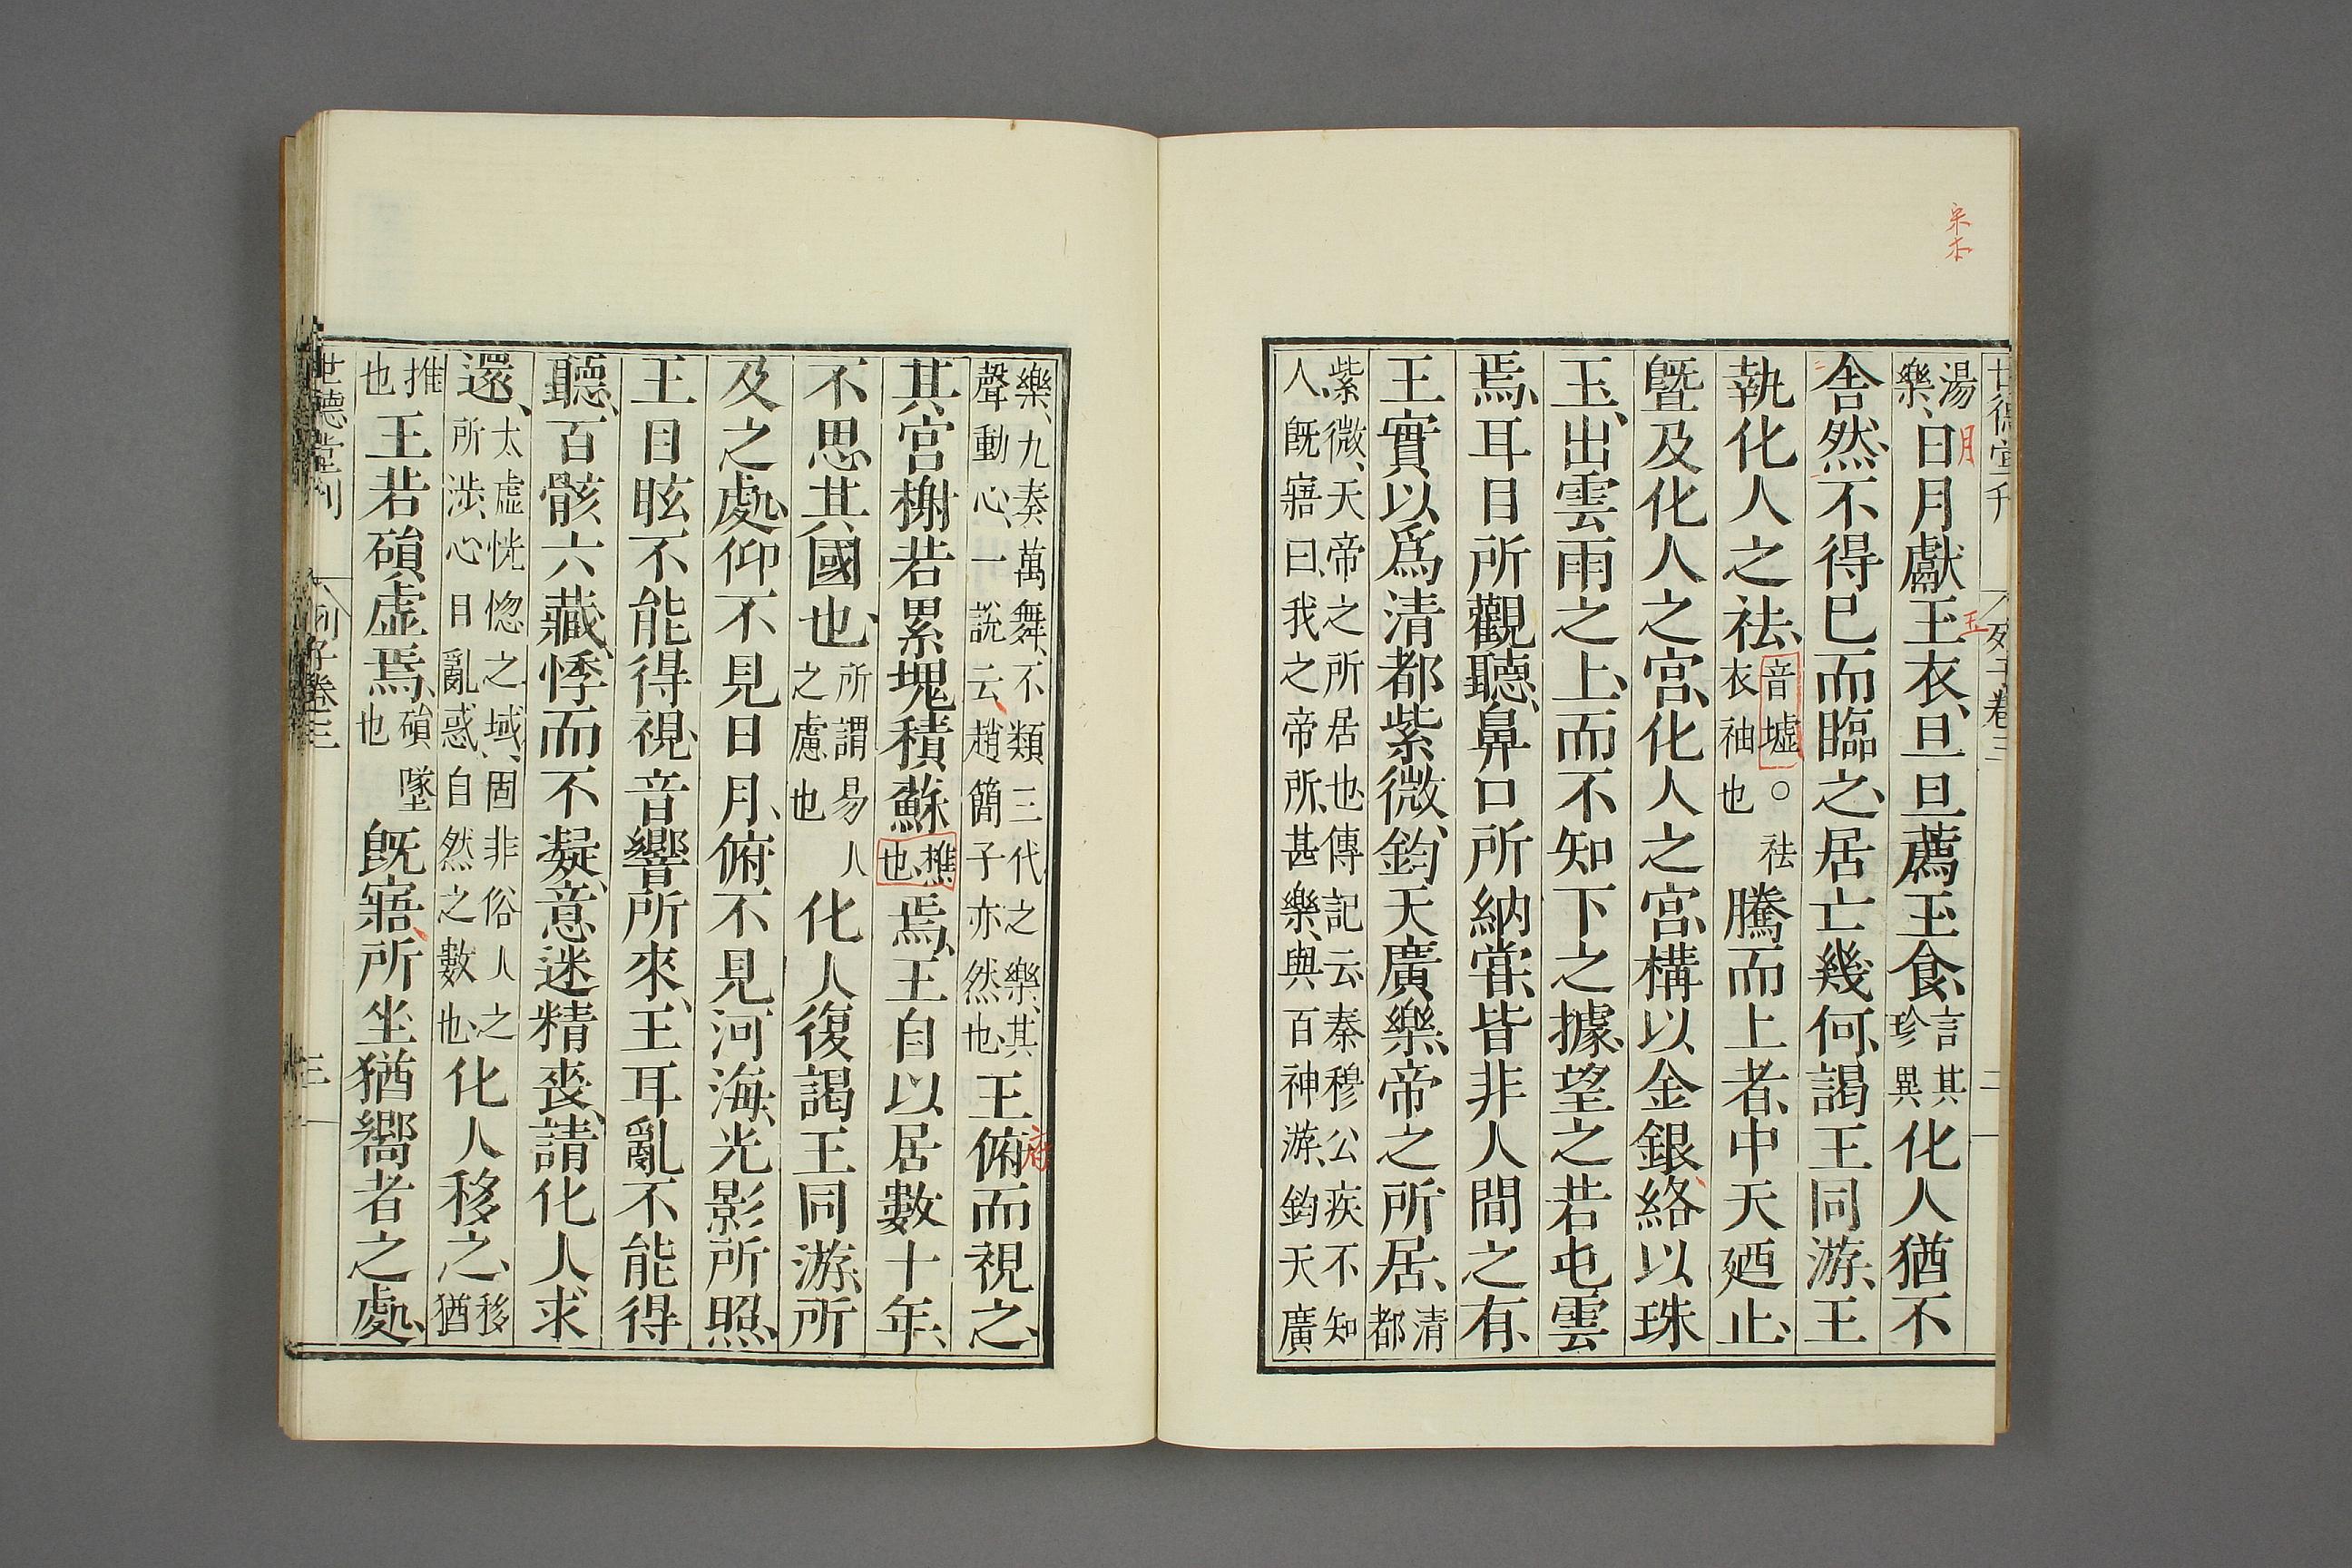 宋本
世德堂刊 列子卷三 二
湯樂、日月獻玉衣、旦旦薦玉食、言其珍異化人猶不
月
玉
舍然、不得巳而臨之、居亡幾何、謁王同游、王
執化人之祛、音墟○祛衣袖也騰而上者、中天廼止、
暨及化人之宮、化人之宮、構以金銀、絡以珠
玉、出雲雨之上、而不知下之據、望之若屯雲
焉、耳目所觀聽、鼻口所納甞、皆非人間之有、
王實以爲清都紫微、鈞天廣樂、帝之所居、清都
紫微、天帝之所居也、傳記云秦穆公疾不知
人、旣寤曰、我之帝所、甚樂、與百神游、鈞天廣
樂、九奏萬舞、不類三代之樂、其
聲動心、一說云、趙簡子亦然也、王俯而視之、
府
其宮榭若累塊積蘇樵也焉、王自以居數十年、
不思其國也、所謂易人之慮也化人復謁王同游、所
及之處、仰不見日月、俯不見河海、光影所照、
王目眩不能得視、音響所來、王耳亂不能得
聽、百骸六藏、悸而不凝、意迷精喪、請化人求
還、太虛恍惚之域、固非俗人之所涉、心目亂惑、自然之數也、化人移之、移猶
推也王若磒虛焉、磒墜也旣寤、所坐猶嚮者之處、
世德堂刊 列子卷三 三